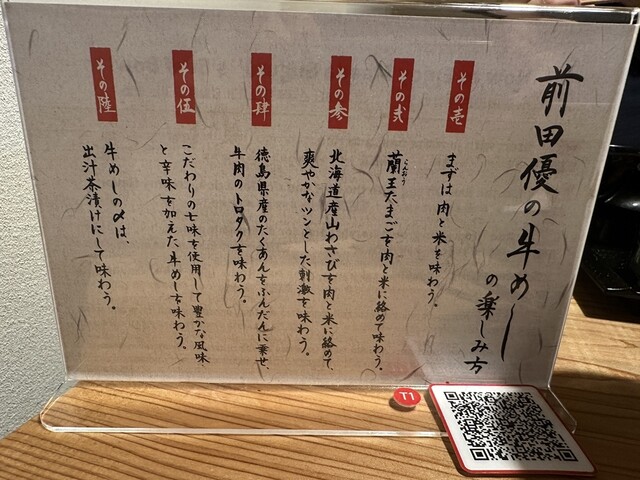 前田優の牛めし
の楽しみ方
その壱
まずは肉と米を味わう。
その弐
らんおう
蘭王たまごを肉と米に絡めて味わう。
その参
北海道産山わさびを肉と米に絡めて、
爽やかなツンとした刺激を味わう。
その肆
徳島県産のたくあんをふんだんに乗せ、
牛肉のトロタクを味わう。
その伍
こだわりの七味を使用して豊かな風味
と辛味を加えた牛めしを味わう。
その陸
牛めしの〆は、
出汁茶漬けにして味わう。
T1